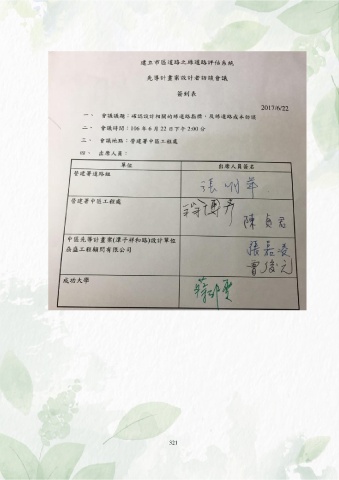 建立市區道路之綠道路評估系統
先導計畫案設計者訪談會議
簽到表
2017/6/22
一、 會議議題：確認設計相關的綠道路指標、及綠道路成本訪談
二、 會議時間：106年6月22日下午2:00分
三、 會議地點：營建署中區工程處
四、 出席人員：
單位 出席人員簽名
營建署道路組
營建署中區工程處
陳貞君
中區先導計畫案(潭子祥和路)設計單位
工程顧問有限公司
成功大學
321